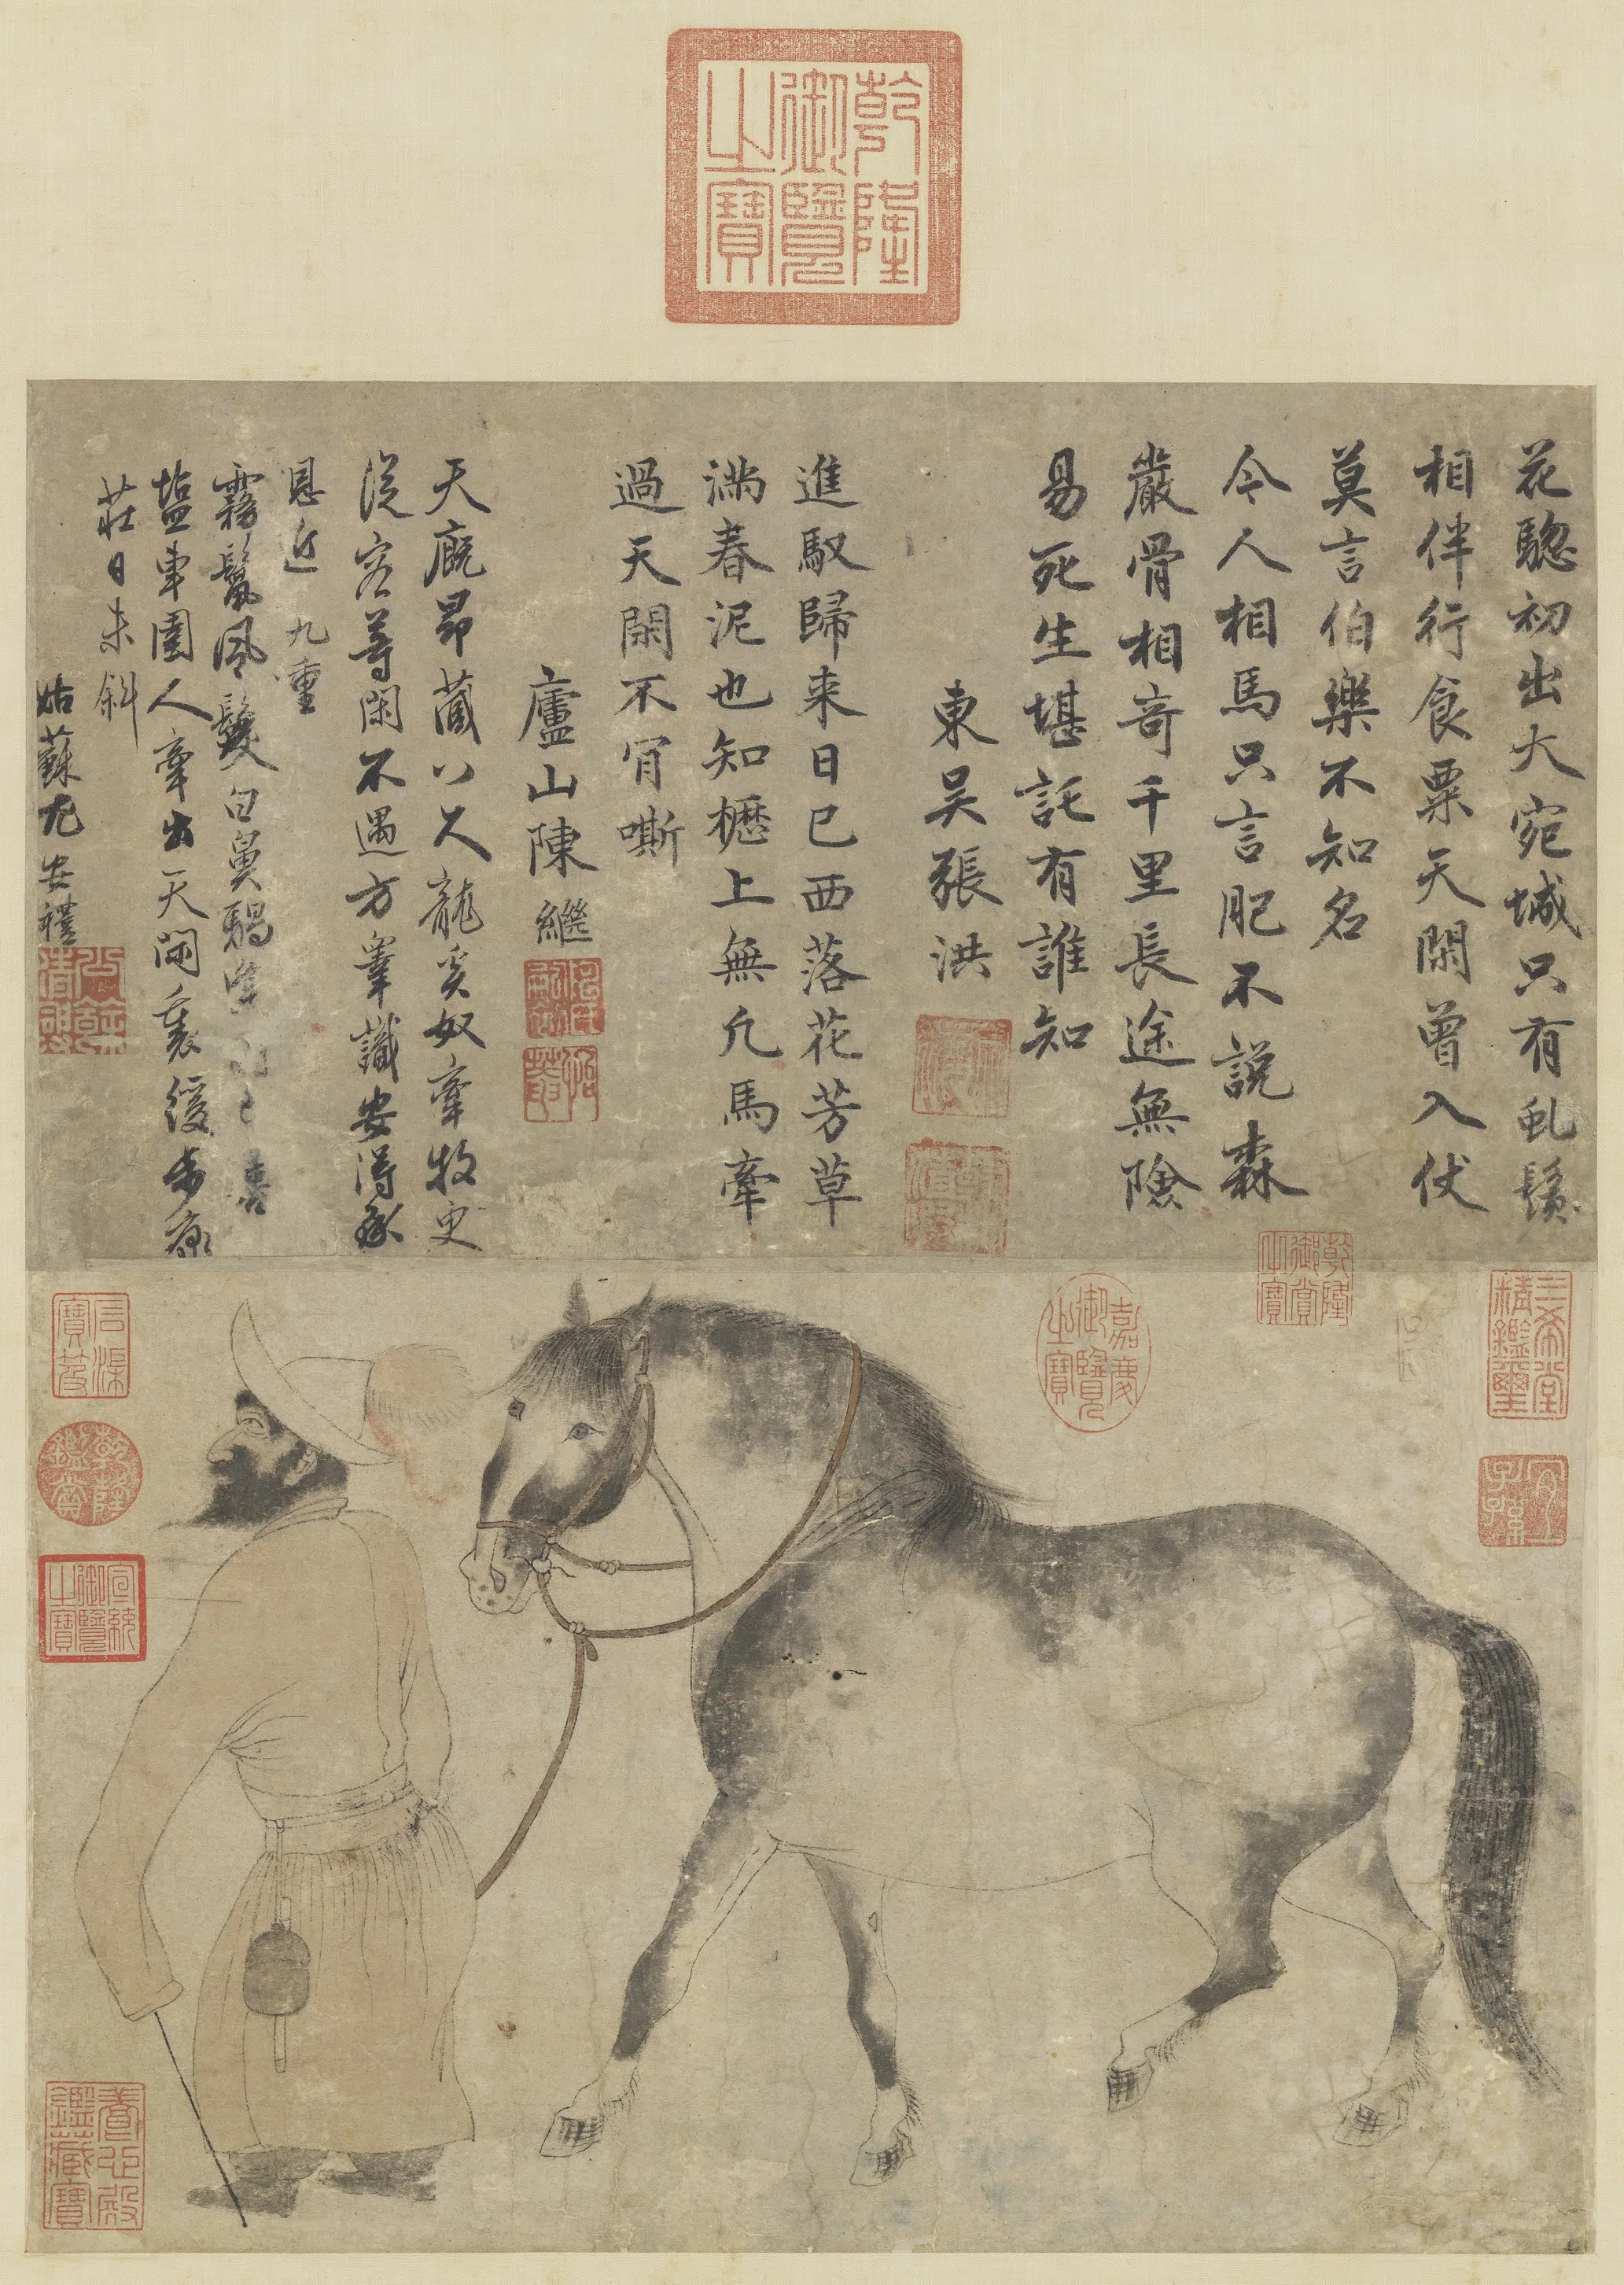 乾隆御覽之寶
花驄初出大宛城只有虬鬚
相伴行食粟天閑曾入伏
莫言伯樂不知名
今人相馬只言肥不說森
嚴骨相奇千里長途無險
易死生堪託有誰知
東吳張洪
進馭歸来日已西落花芳草
滿春泥也知櫪上無凡馬牽
過天閑不肎嘶
廬山陳繼
天廐昂藏八尺龍奚奴牽牧更
從容等閑不遇方臯識安得承
恩近九重
霧鬣風鬉白鼻騧喜
塩車圉人牽出天閑裏緩步康
莊日未斜
姑蘇尤安禮
乾隆御賞之寶
三希堂精鑑璽
宜子孫
嘉慶御覽之寶
石渠寶笈
乾隆鑑賞
宣統御覽之寶
養心殿鑑藏寶